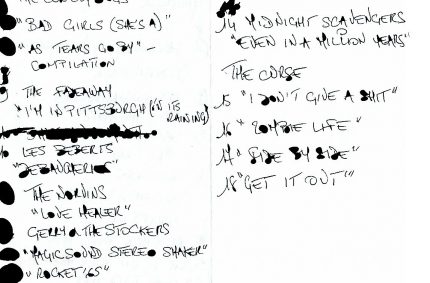 "BAD GIRLS (SAES A)"
"AS TEARS GO BY" -
COMPILATION
THE FADEAWAY
"I'M IN PITTSBURGH (IN ITS
RAINING)
LES BEBERTS
THE NORVINS
"LOVE HEALER"
GERRY & THE STOCKERS
"MAGIC SOUND STEREO SHAKER"
"ROCKET 65"
14 MIDNIGHT SCAVENGERS
"EVEN IN A MILLION YEARS"
THE CURSE
15 "I DON'T GIVE A SHIT"
16 "ZOMBIE LIFE"
17 "SIDE BY SIDE"
18 "GET IT OUT"